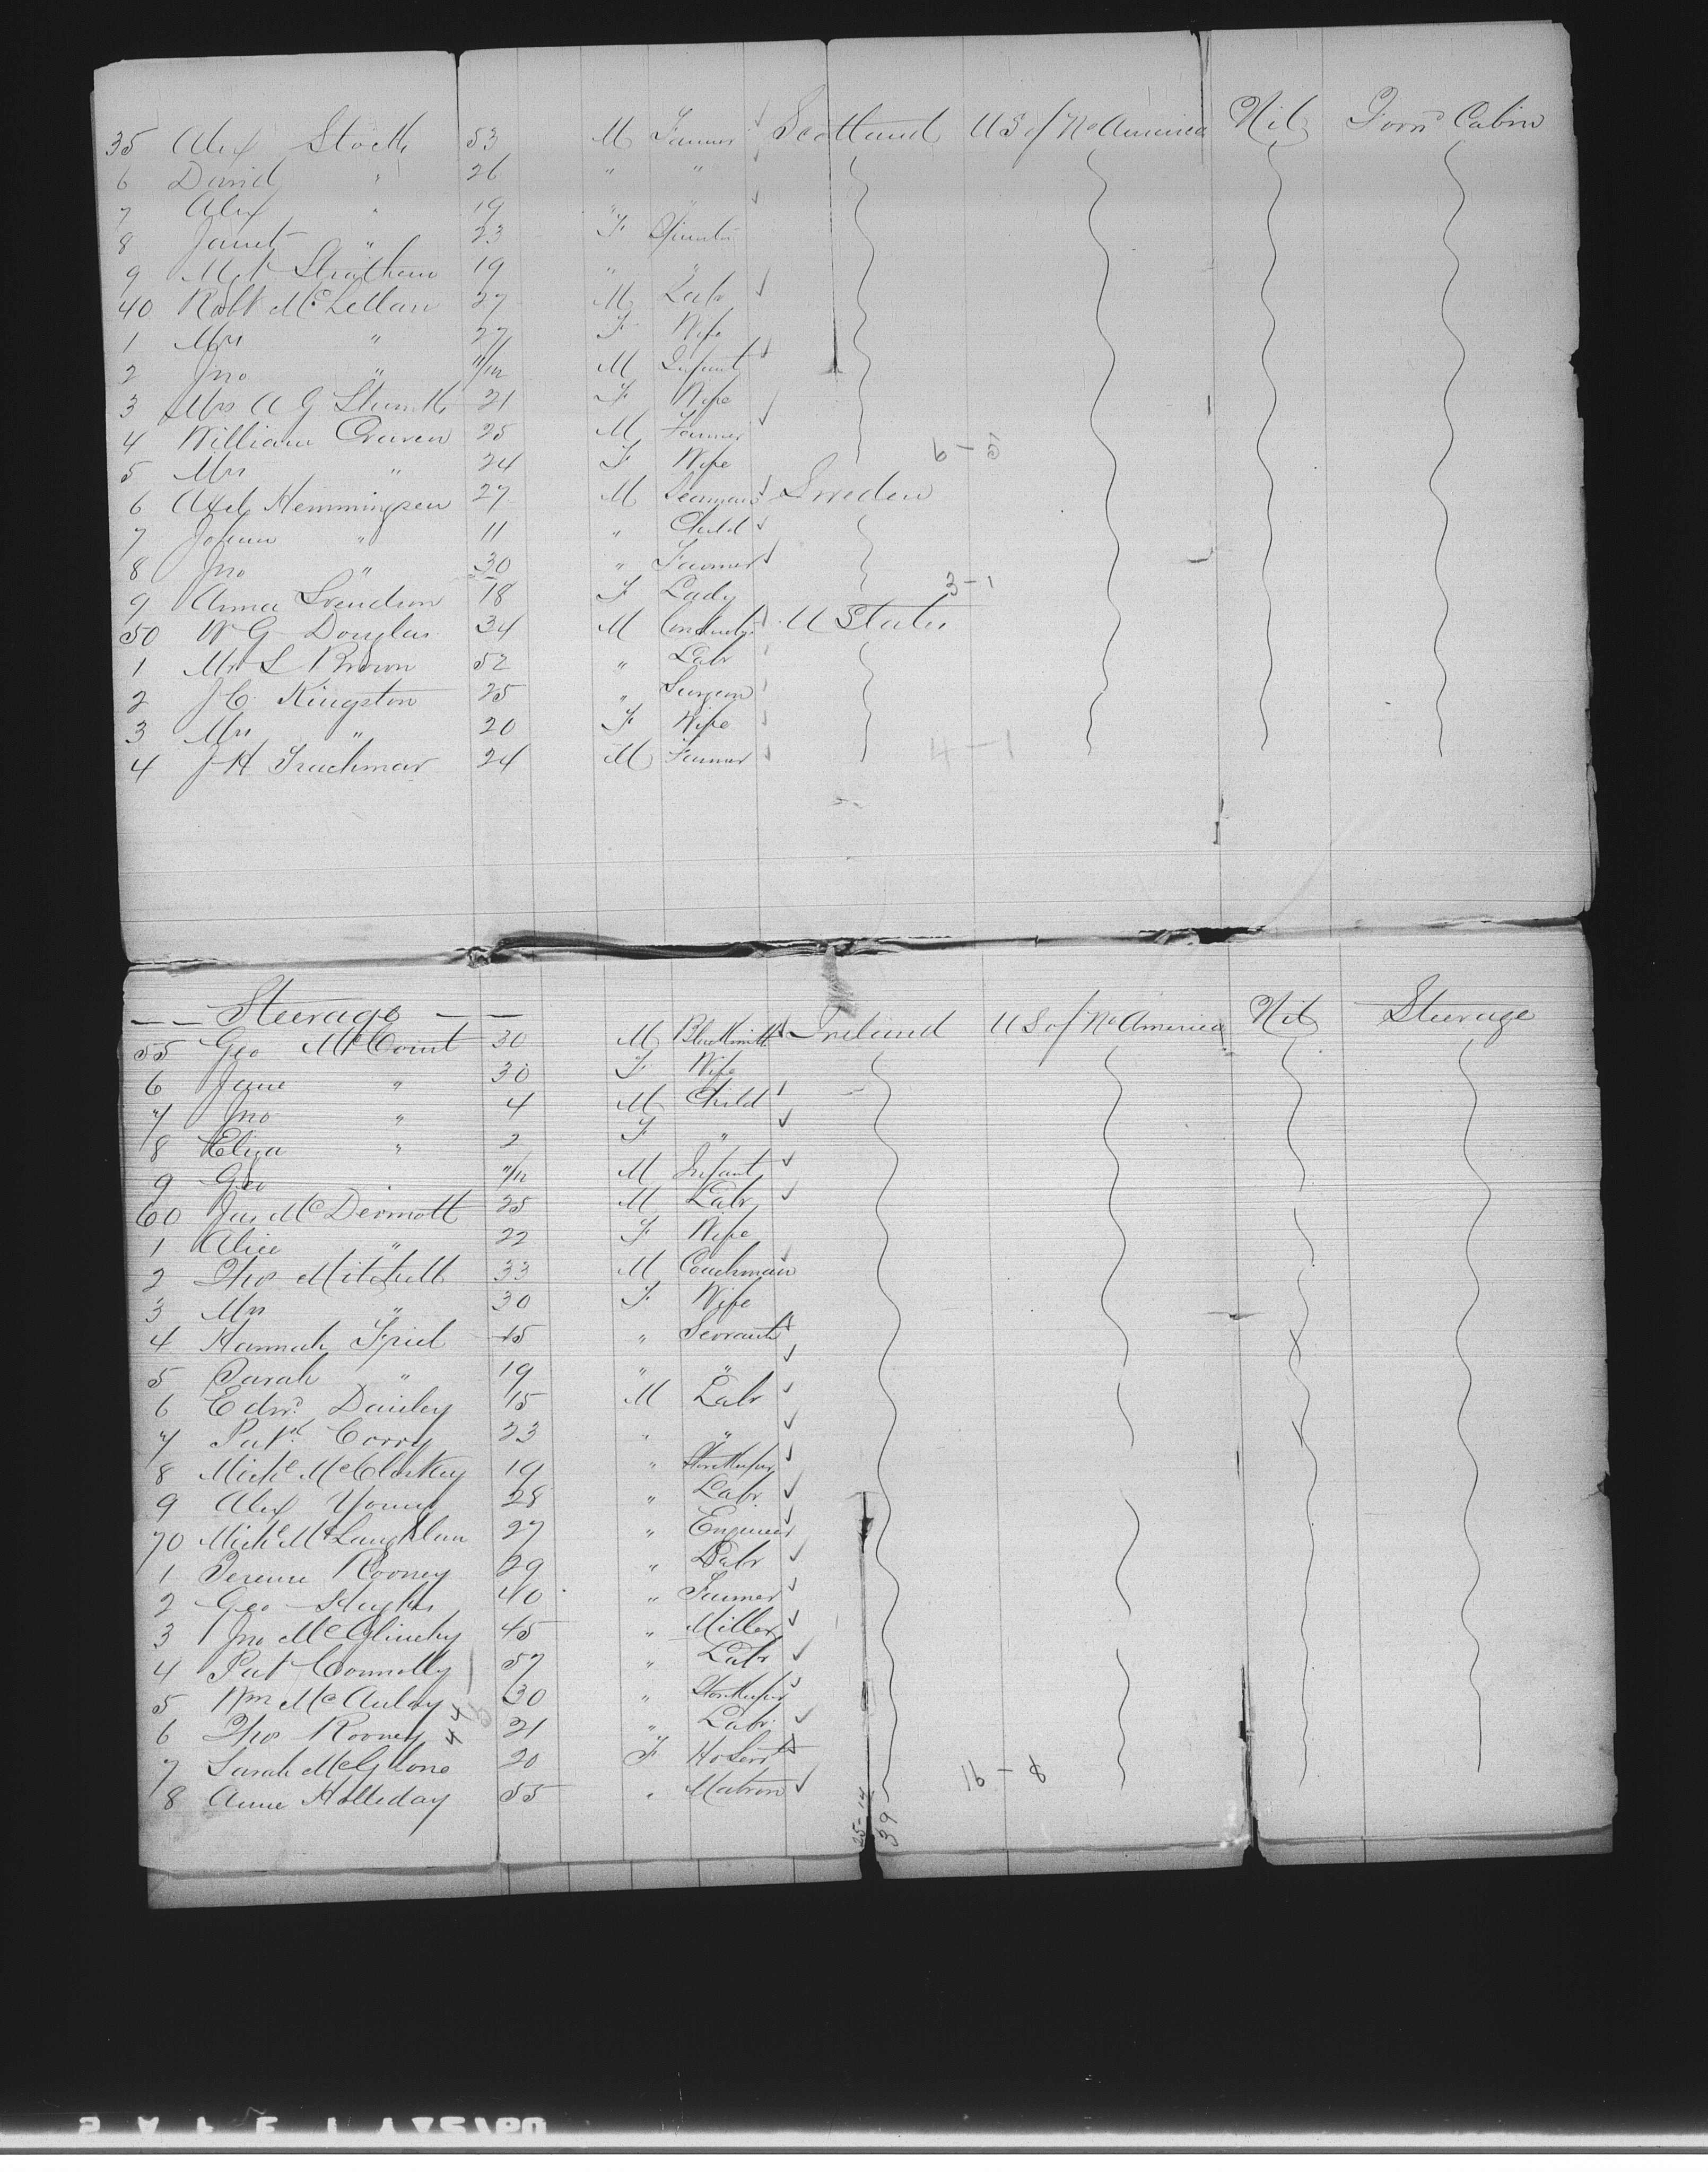 35 Alex Stock 53 M Farmer Scotland U S of No America Nil Forrd Cabin
6 David " 26 " "
7 Alex " 19 " "
8 Janet " 23 F Spinster
9 M Strathern 19 " "
40 Robt McLellan 27 M Labr
1 Mrs " 27 F Wife
2 Jno " 11/12 M Infant
3 Mrs A G 21 F Wife
4 William Craven 25 M Farmer
5 Mrs " 24 F Wife 6 - 5
6 Axel Hemmingsen 27 M Seaman Sweden
7 Johan " 11 " Child
8 Jno " 30 " Farmer
9 Anna Svendson 18 F Lady 3 - 1
50 W G Douglas 34 M U States
1 Mr L Brown 52 " Labr
2 J C Kingston 25 " Surgeon
3 Mrs " 20 F Wife
4 J H 24 M Farmer 4 - 1
— — Steerage — —
55 Geo McCourt 30 M Blacksmith Ireland U S of No America Nil Steerage
6 Jane " 30 F Wife
7 Jno " 4 M Child
8 Eliza " 2 F "
9 Geo 11/12 M Infant
60 Jas McDermott 25 M Labr
1 Alice " 22 F Wife
2 Thos Mitchell 33 M Coachman
3 Mrs " 30 F Wife
4 Hannah Friel 15 " Servant
5 Sarah " 19 " "
6 Edwd 15 M Labr
7 Patk Corry 23 " "
8 Michl McCloskey 19 " Storekeeper
9 Alex Young 28 " Labr
70 Michl McLaughlan 27 " Engineer
1 Terence Rooney 29 " Labr
2 Geo Hughes 40 " Farmer
3 Jno McGlinchy 45 " Miller
4 Pat Connolly 57 " Labr
5 Wm McAulay 30 " Storekeeper
6 Thos Rooney 21 " Labr
7 Sarah McGlone 20 F Ho Servt
8 Anne Holleday 55 " Matron 16 - 8
25-14
39